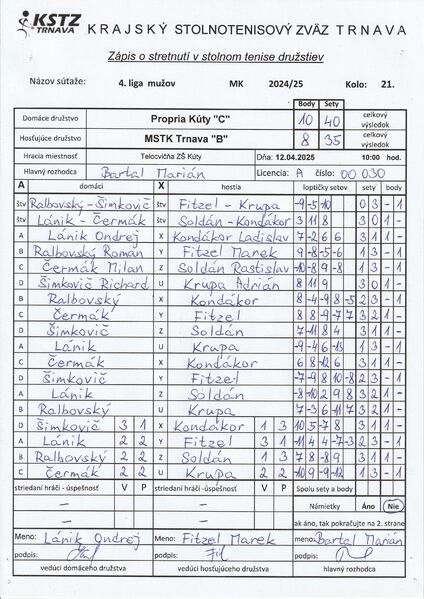 KSTZ TRNAVA KRAJSKÝ STOLNOTENISOVÝ ZVÄZ TRNAVA
Zápis o stretnutí v stolnom tenise družstiev
Názov súťaže: 4. liga mužov MK 2024/25 Kolo: 21.
Body Sety
Domáce družstvo Propria Kúty "C" 10 40 celkový výsledok
Hosťujúce družstvo MSTK Trnava "B" 8 35 celkový výsledok
Hracia miestnosť Telocvičňa ZŠ Kúty Dňa: 12.04.2025 10:00 hod.
Hlavný rozhodca Bartal Marián Licencia: A číslo 00 030
A domáci X hostia loptičky setov sety body
štv Ralbovský-Šimkovič štv Fitzel - Krupa -9 -5 -10 0 3 - 1
štv Lánik - Čermák štv Soldán-Kondákor 3 11 8 3 0 1 -
A Lánik Ondrej X Kondákor Ladislav 7 -2 6 6 3 1 1 -
B Ralbovský Roman Y Fitzel Marek -9 -8 5 -6 1 3 - 1
C Čermák Milan Z Soldán Rastislav -10 -8 9 -8 1 3 - 1
D Šimkovič Richard U Krupa Adrián 8 11 9 3 0 1 -
B Ralbovský X Kondákor 8 -4 9 -8 -5 2 3 - 1
C Čermák Y Fitzel 8 8 -9 -7 7 3 2 1 -
D Šimkovič Z Soldán -7 11 8 4 3 1 1 -
A Lánik U Krupa -9 -4 6 -13 1 3 - 1
C Čermák X Kondákor 6 8 -12 6 3 1 1 -
D Šimkovič Y Fitzel -7 -9 8 10 -8 2 3 - 1
A Lánik Z Soldán -8 -10 2 9 8 3 2 1 -
B Ralbovský U Krupa -7 -3 6 11 7 3 2 1 -
D Šimkovič 3 1 X Kondákor 1 3 10 5 -7 8 3 1 1 -
A Lánik 2 2 Y Fitzel 3 1 -11 4 4 -7 -3 2 3 - 1
B Ralbovský 2 2 Z Soldán 1 3 7 8 -8 9 3 1 1 -
C Čermák 2 2 U Krupa 2 2 -10 9 -9 -12 1 3 - 1
striedaní hráči - úspešnosť V P striedaní hráči - úspešnosť V P Spolu sety a body
– – Námietky Áno Nie
– – ak áno, tak pokračujte na 2. strane
Meno: Lánik Ondrej Meno: Fitzel Marek meno: Bartal Marián
podpis: podpis: podpis:
vedúci domáceho družstva vedúci hosťujúceho družstva hlavný rozhodca